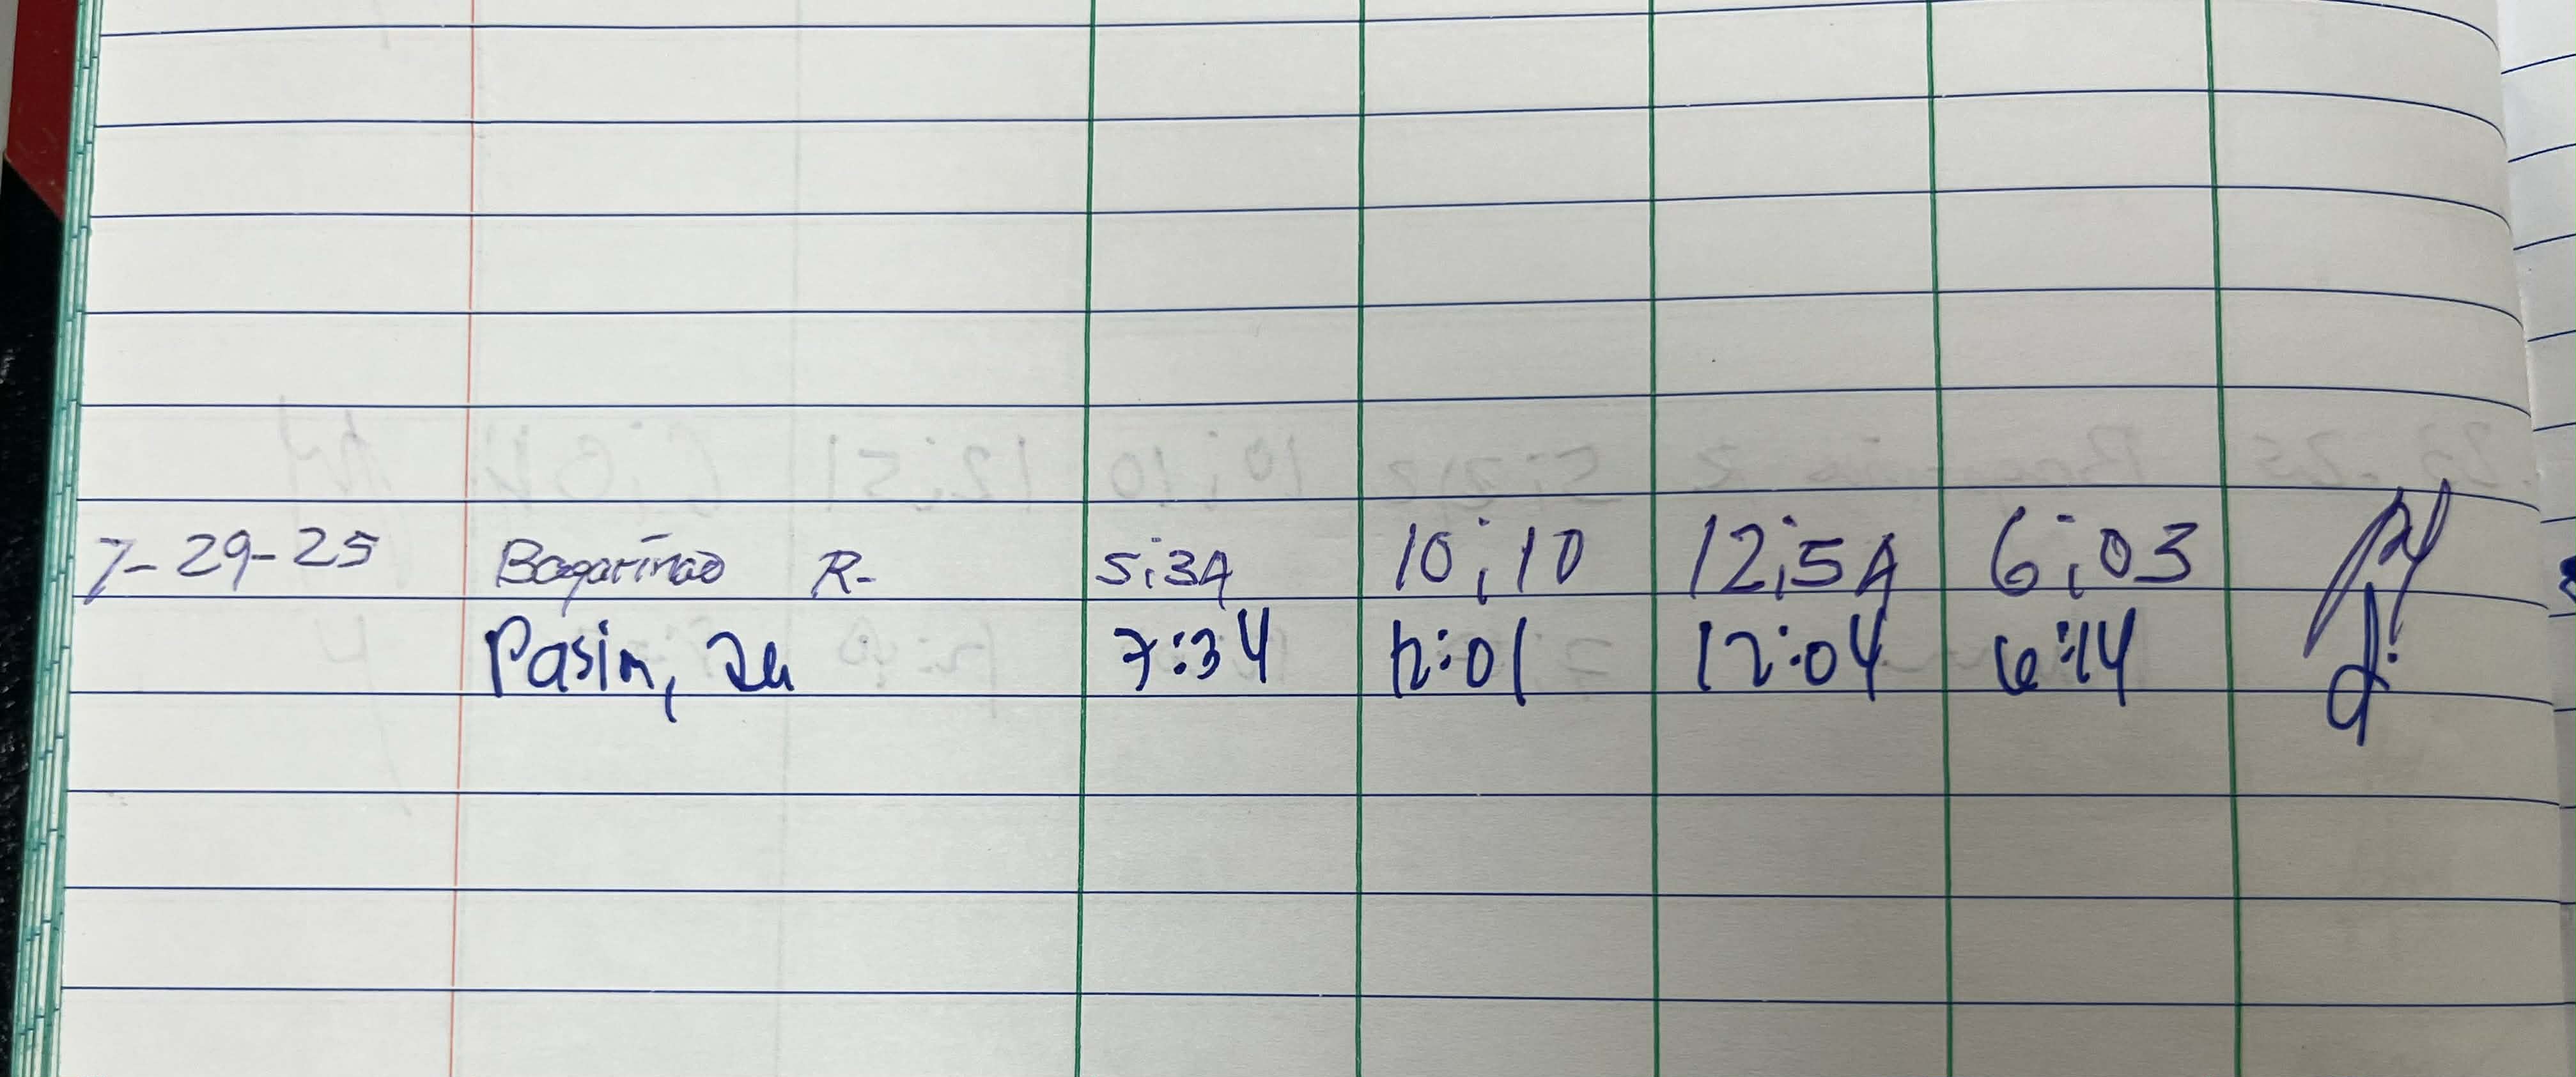 7-29-25 Bagarinao R. 5:34 10:10 12:54 6:03
Pasin, 7:34 12:01 12:04 6:14